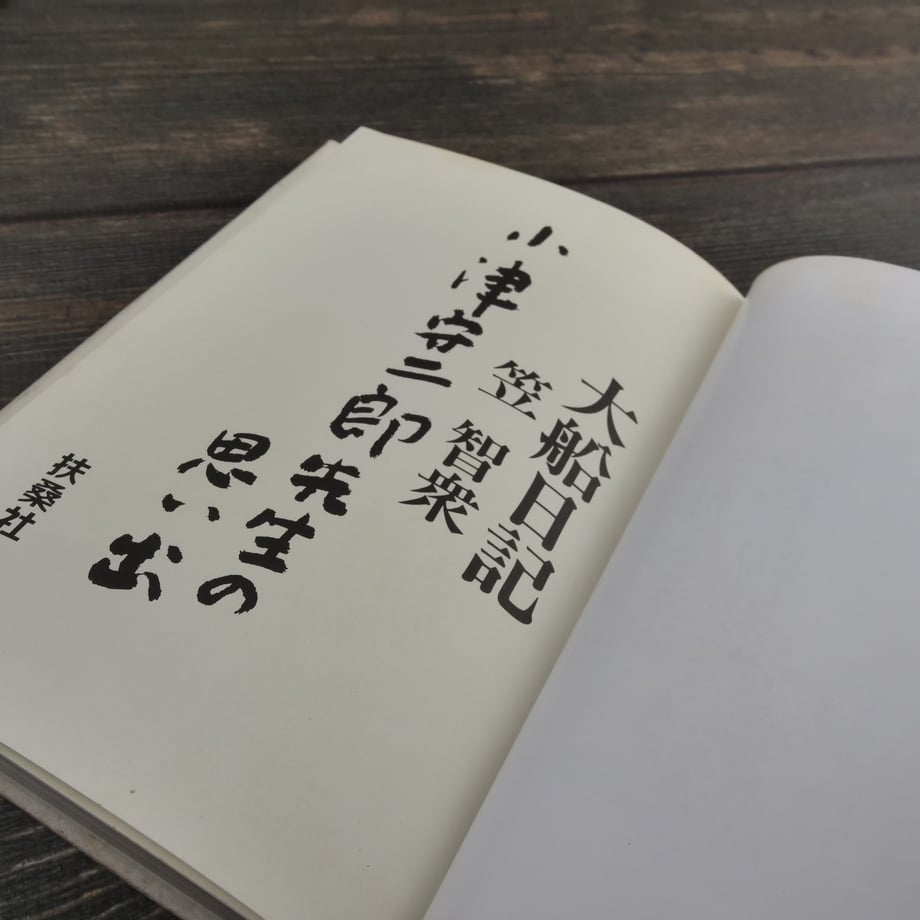 大船日記
笠 智衆
小津安二郎先生の
思い出
扶桑社